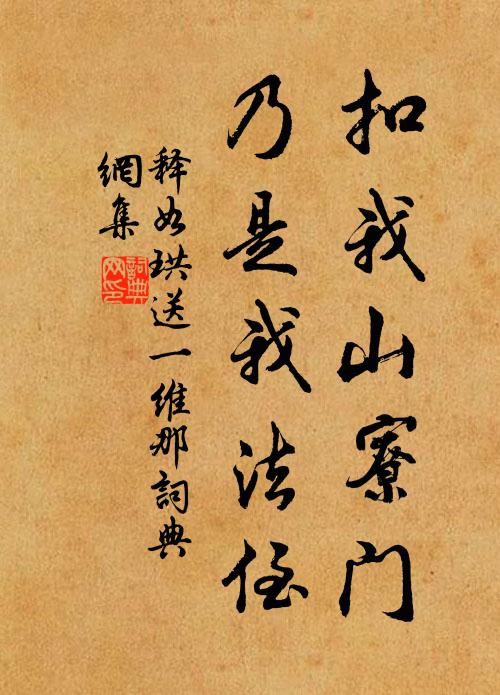 扣我山寮门
乃是我法侄
释如珙送一維那詞典
網集
詞典網印